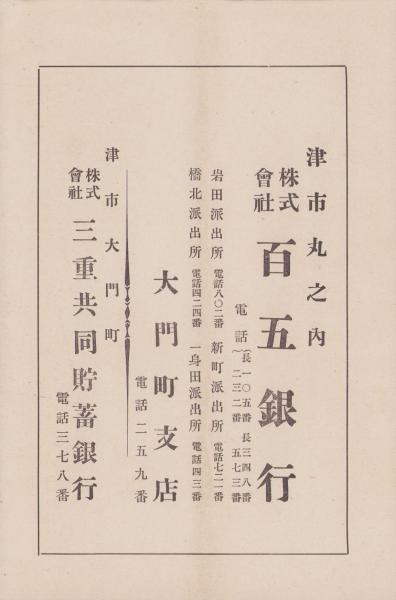 津市丸之內
株式會社 百五銀行
電話 長一〇五番 長三四八番
二三二番 五七三番
岩田派出所 電話八〇二番 新町派出所 電話七二一番
橋北派出所 電話四二四番 一身田派出所 電話四三番
大門町支店
電話二五九番
津市大門町
株式會社 三重共同貯蓄銀行
電話三七八番